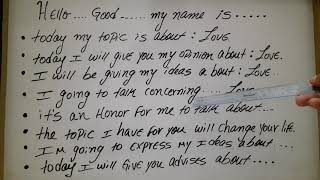 Hello.... Good...... my name is.....
• today my topic is about: Love.
today I will give you my opinion about: Love.
• I will be giving my ideas about: Love..
• I going to talk concerning.... Love
• it's an Honor For me to talk about...
• the topic I have for you will change your life.
• I'm going to express my Ideas about....
today I will Give you advises about....